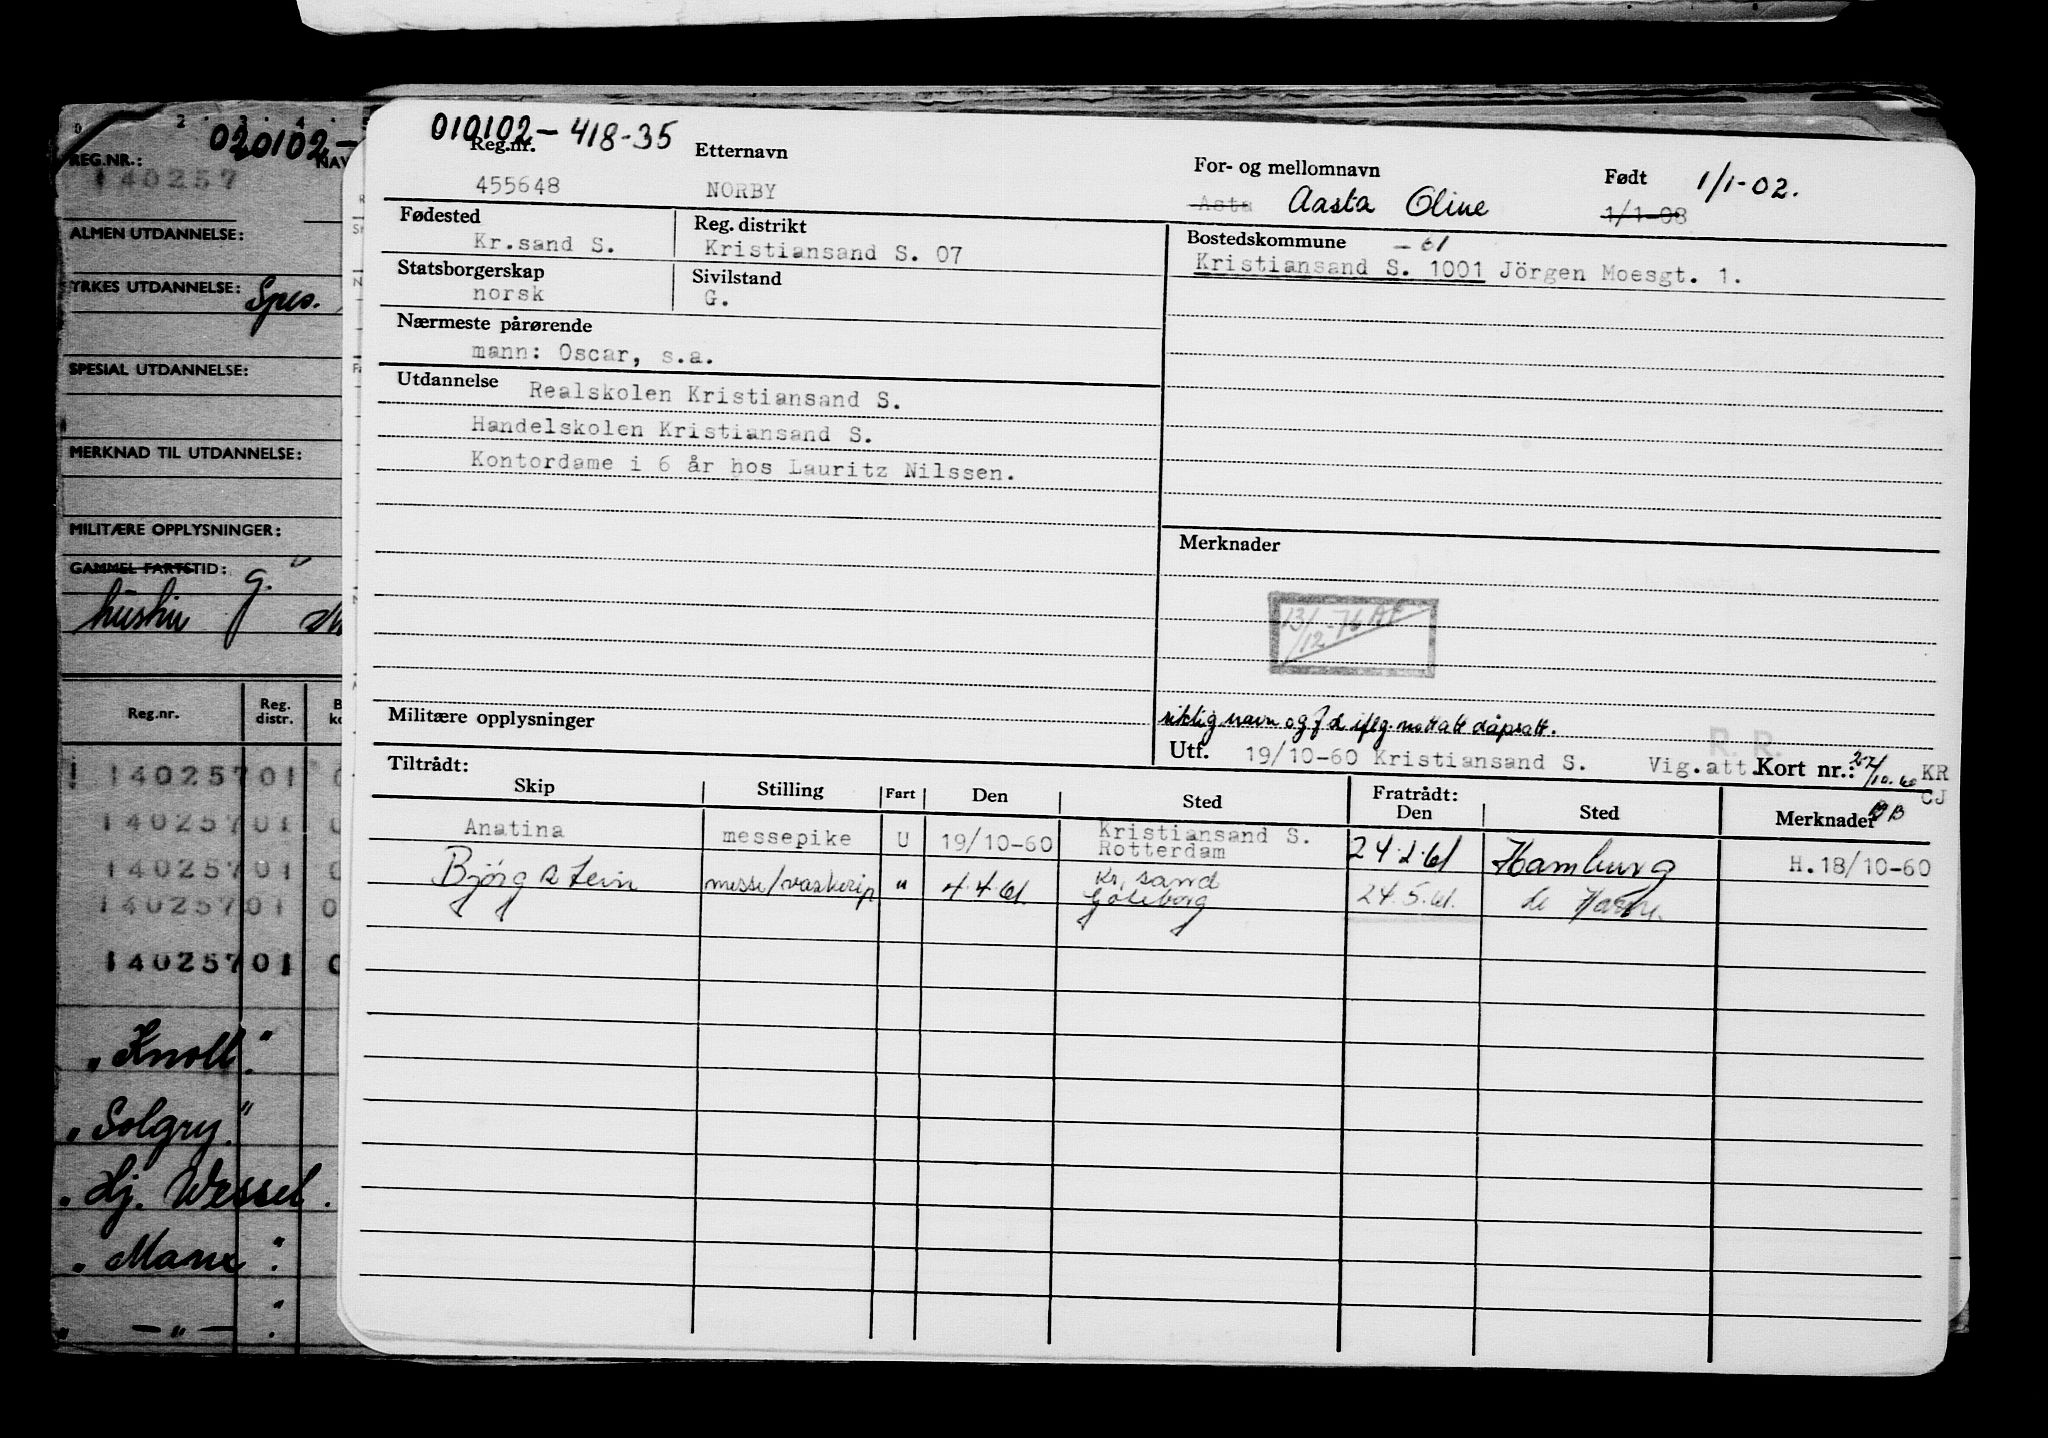 020102-
REG.NR.:
NAV
140257
ALMEN UTDANNELSE:
YRKES UTDANNELSE: Spes.
SPESIAL UTDANNELSE:
MERKNAD TIL UTDANNELSE:
MILITÆRE OPPLYSNINGER:
GAMMEL FARTSTID: g.
Reg.nr. Reg. distr.
14025701
14025701
14025701
14025701
14025701
"Knoll".
"Solgry."
"Hj. Wessel.
010102-418-35
Reg.nr. Etternavn For- og mellomnavn Født 1/1-02.
455648 NORBY Asta Aasta Oline 1/1-08
Fødested Reg. distrikt Bostedskommune -61
Kr.sand S. Kristiansand S. 07 Kristiansand S. 1001 Jörgen Moesgt. 1.
Statsborgerskap Sivilstand
norsk G.
Nærmeste pårørende
mann: Oscar, s.a.
Utdannelse Realskolen Kristiansand S.
Handelskolen Kristiansand S.
Kontordame i 6 år hos Lauritz Nilssen.
Merknader
13/12-76 AF
Militære opplysninger
riktig navn og f d iflg. mottatt dåpsatt.
R. R.
Utf. 19/10-60 Kristiansand S. Vig.att. Kort nr.: KR
CJ
Tiltrådt: Fratrådt:
Skip Stilling Fart Den Sted Den Sted Merknader
Anatina messepike U 19/10-60 Kristiansand S. Rotterdam 24.2.61 Hamburg H.18/10-60
Björg Stein messe/vaskerip " 4.4.61. Kr.sand Göteborg 24.5.61. le Havre.